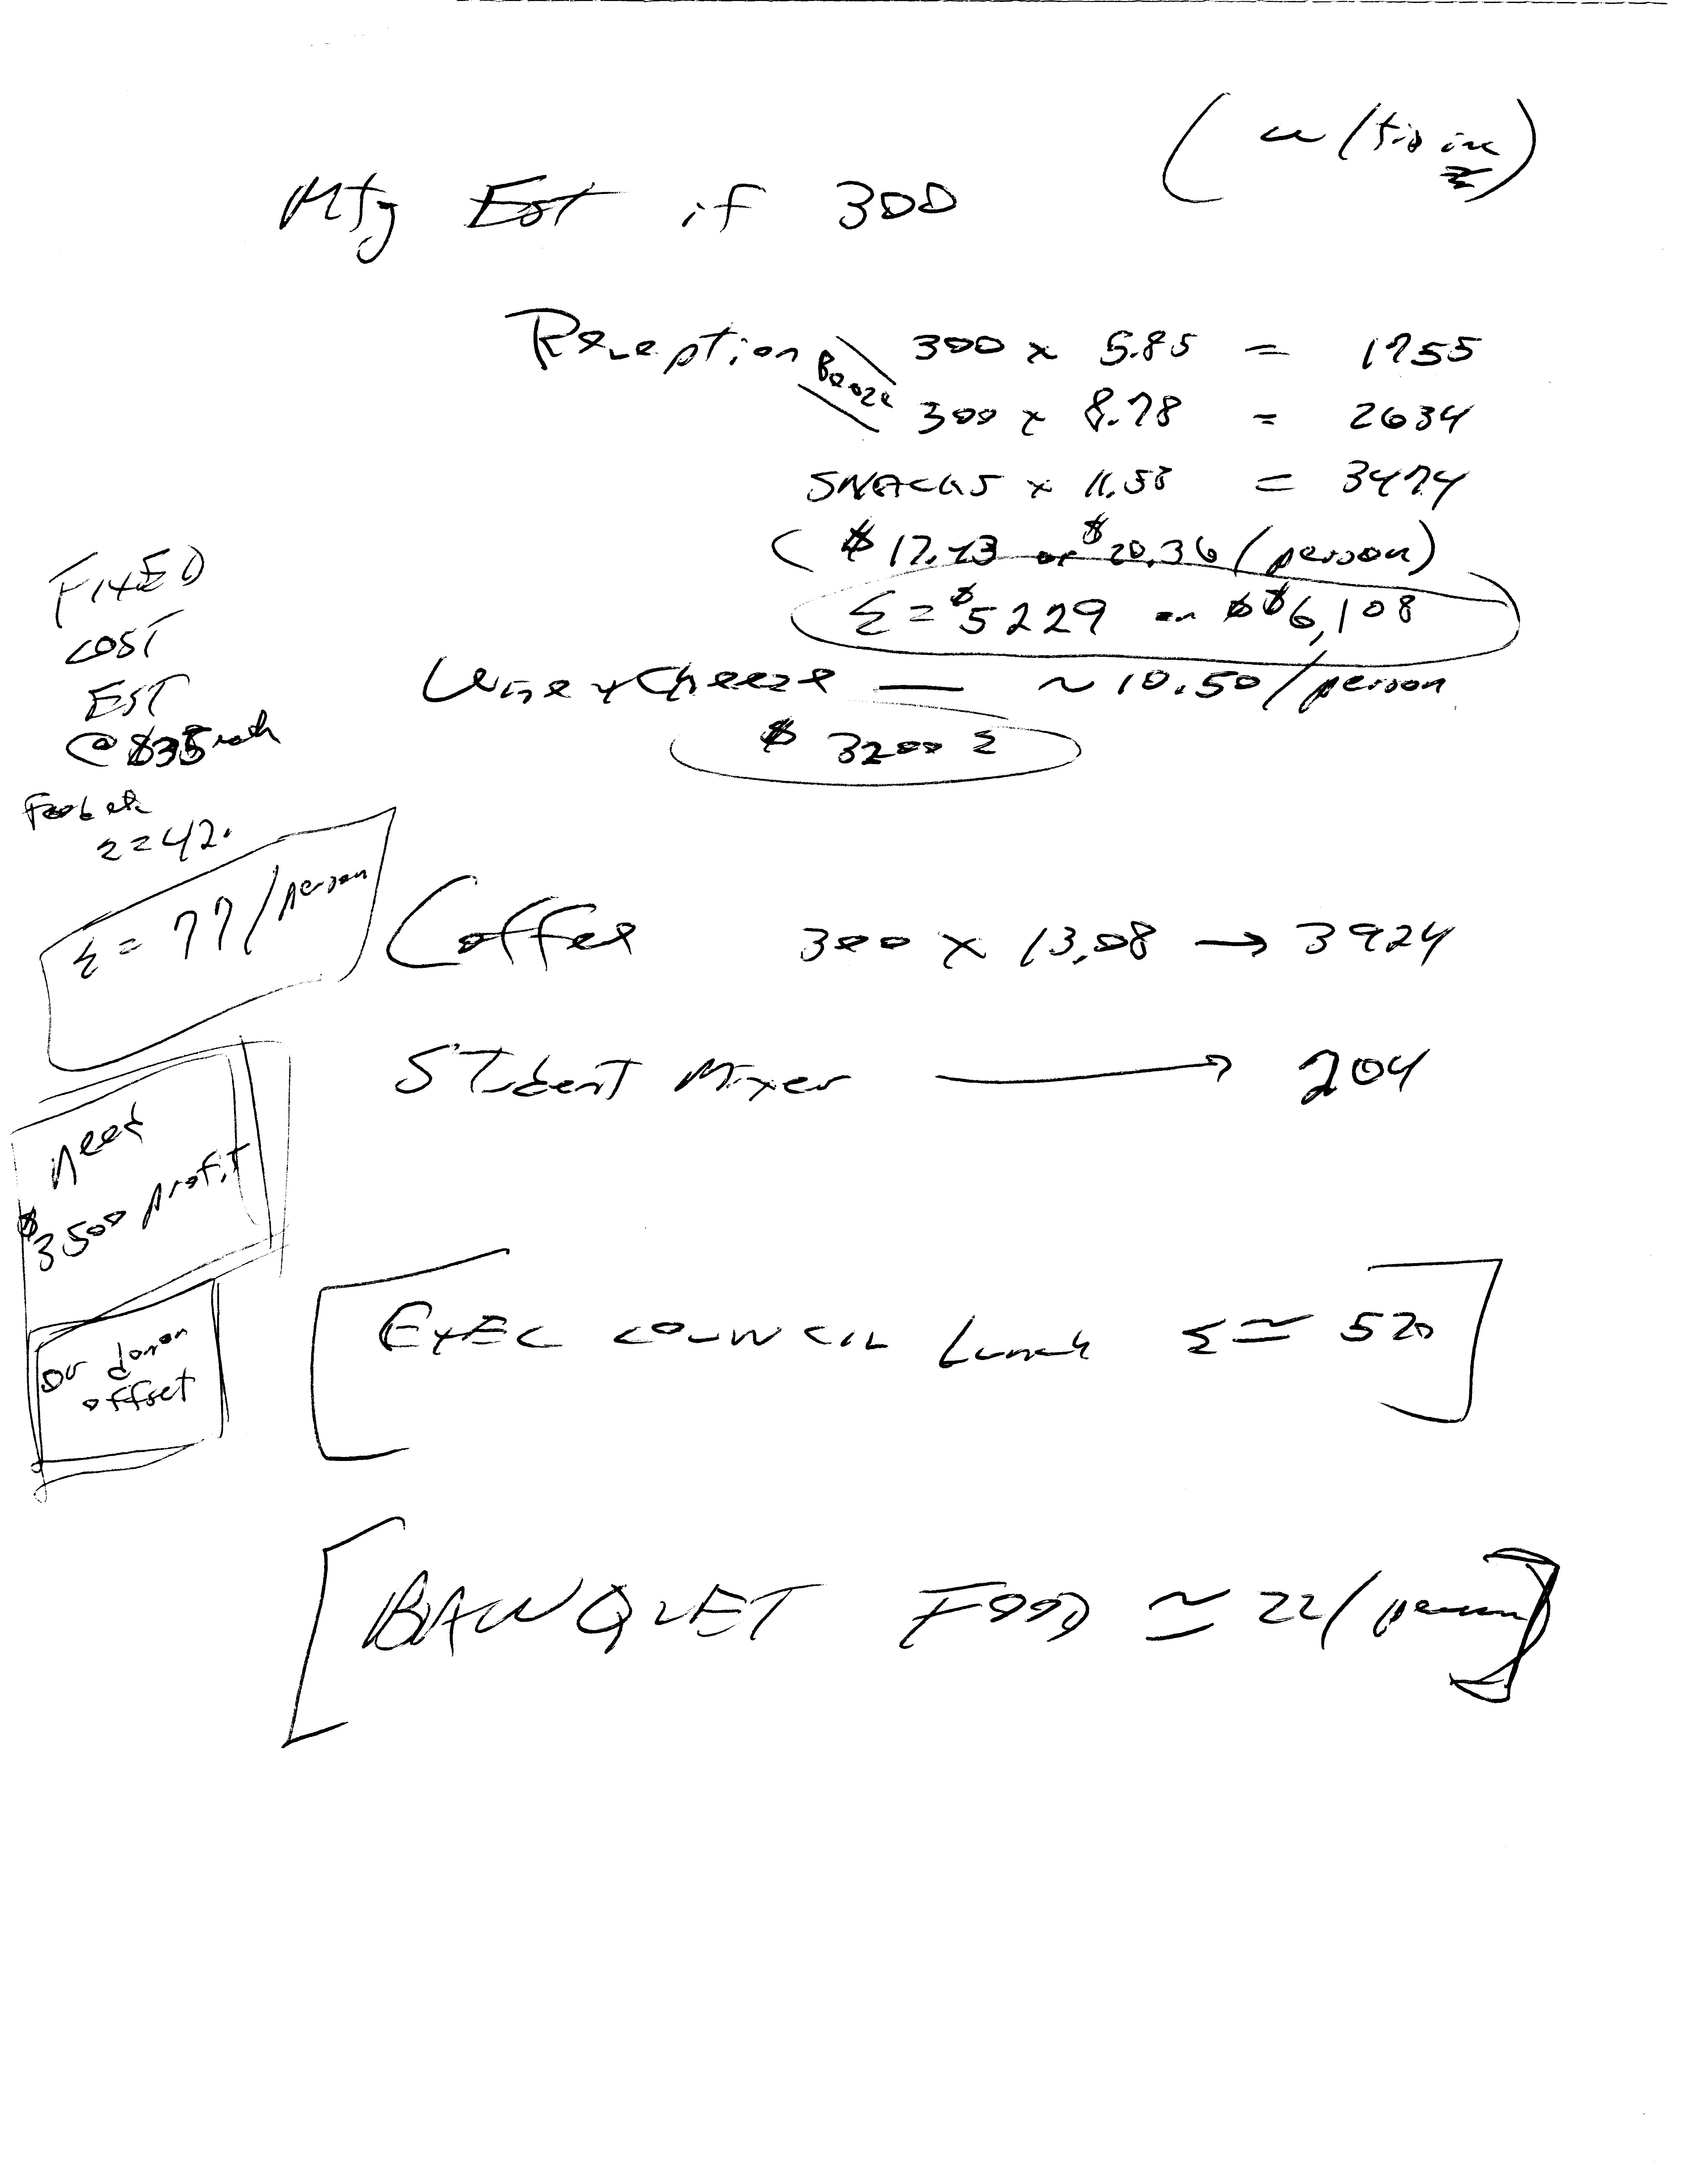 (w/tip inc)
Mtg Est if 300
Reception Booze 300 x 5.85 = 1755
300 x 8.78 = 2634
SNACKS x 11.58 = 3474
($17.43 or $20.36/person)
Σ = $5229 or $$6,108
Wine + Cheeze — ~10.50/person
$ 3200 Σ
FIXED
COST
EST
@ $35 each
Food etc
Σ = 42.
Σ = 77/person
Coffee 300 x 13.08 → 3924
STudent Mixer → 204
need
$3500 profit
or donor
offset
[EXEC COUNCIL Lunch Σ ≃ 520]
[BANQUET FOOD ≃ 22/person]